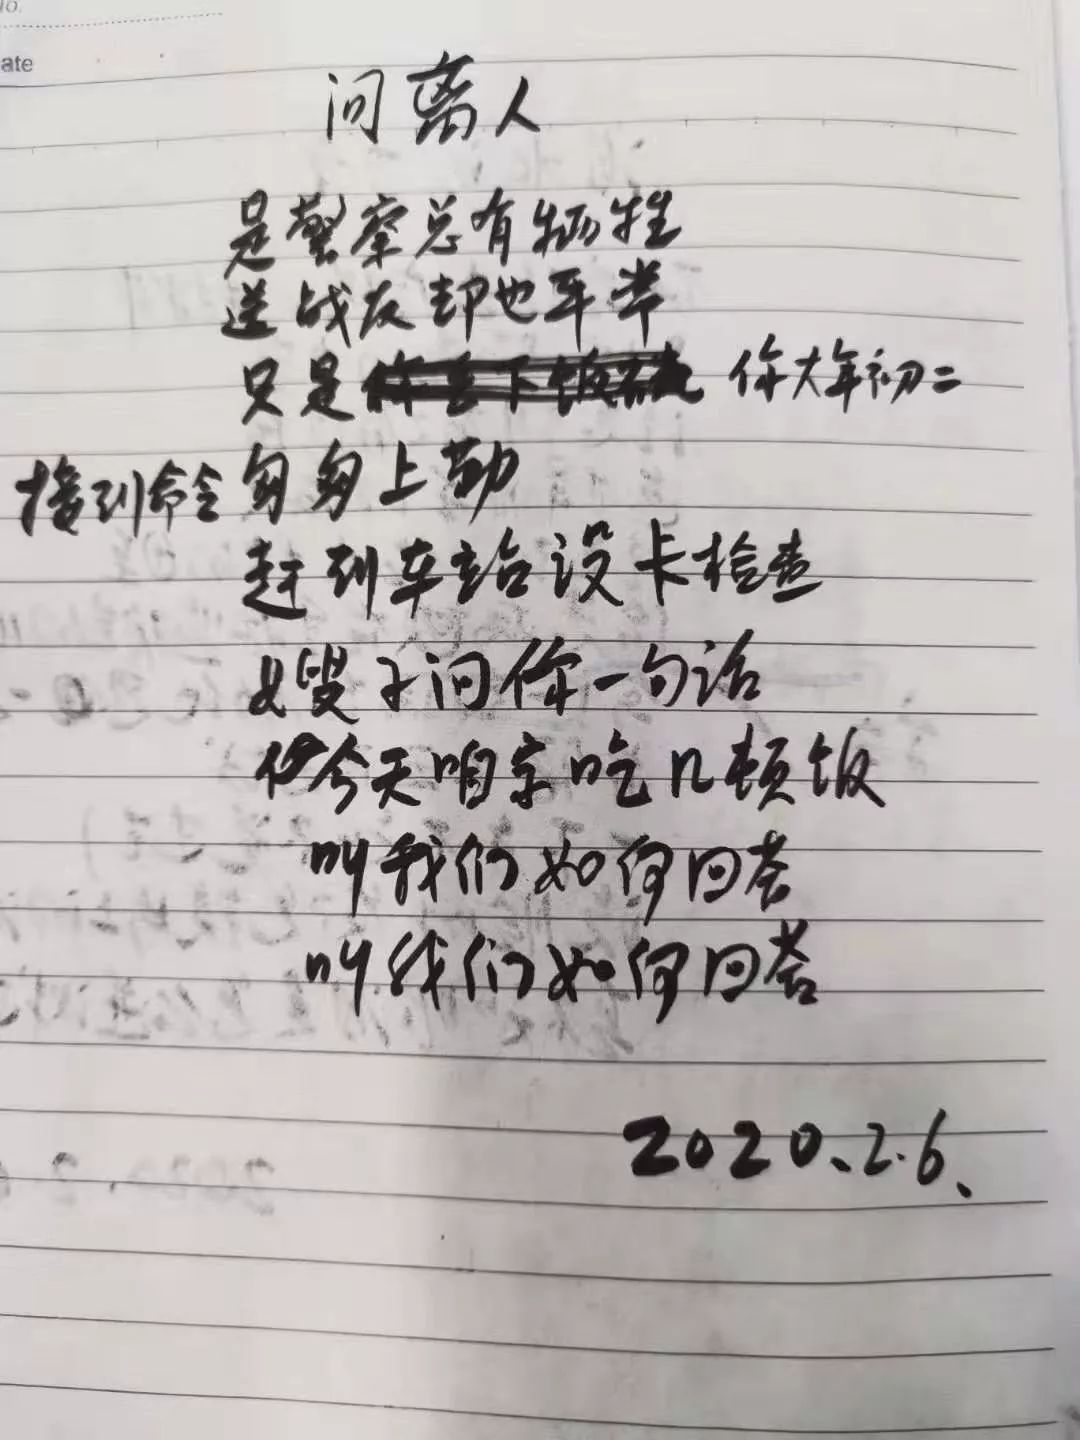 No.
ate
问离人
是警察总有牺牲
送战友却也平常
只是 你大年初二
接到命令匆匆上勤
赶到车站设卡检查
嫂子问你一句话
今天咱家吃几顿饭
叫我们如何回答
叫我们如何回答
2020.2.6、